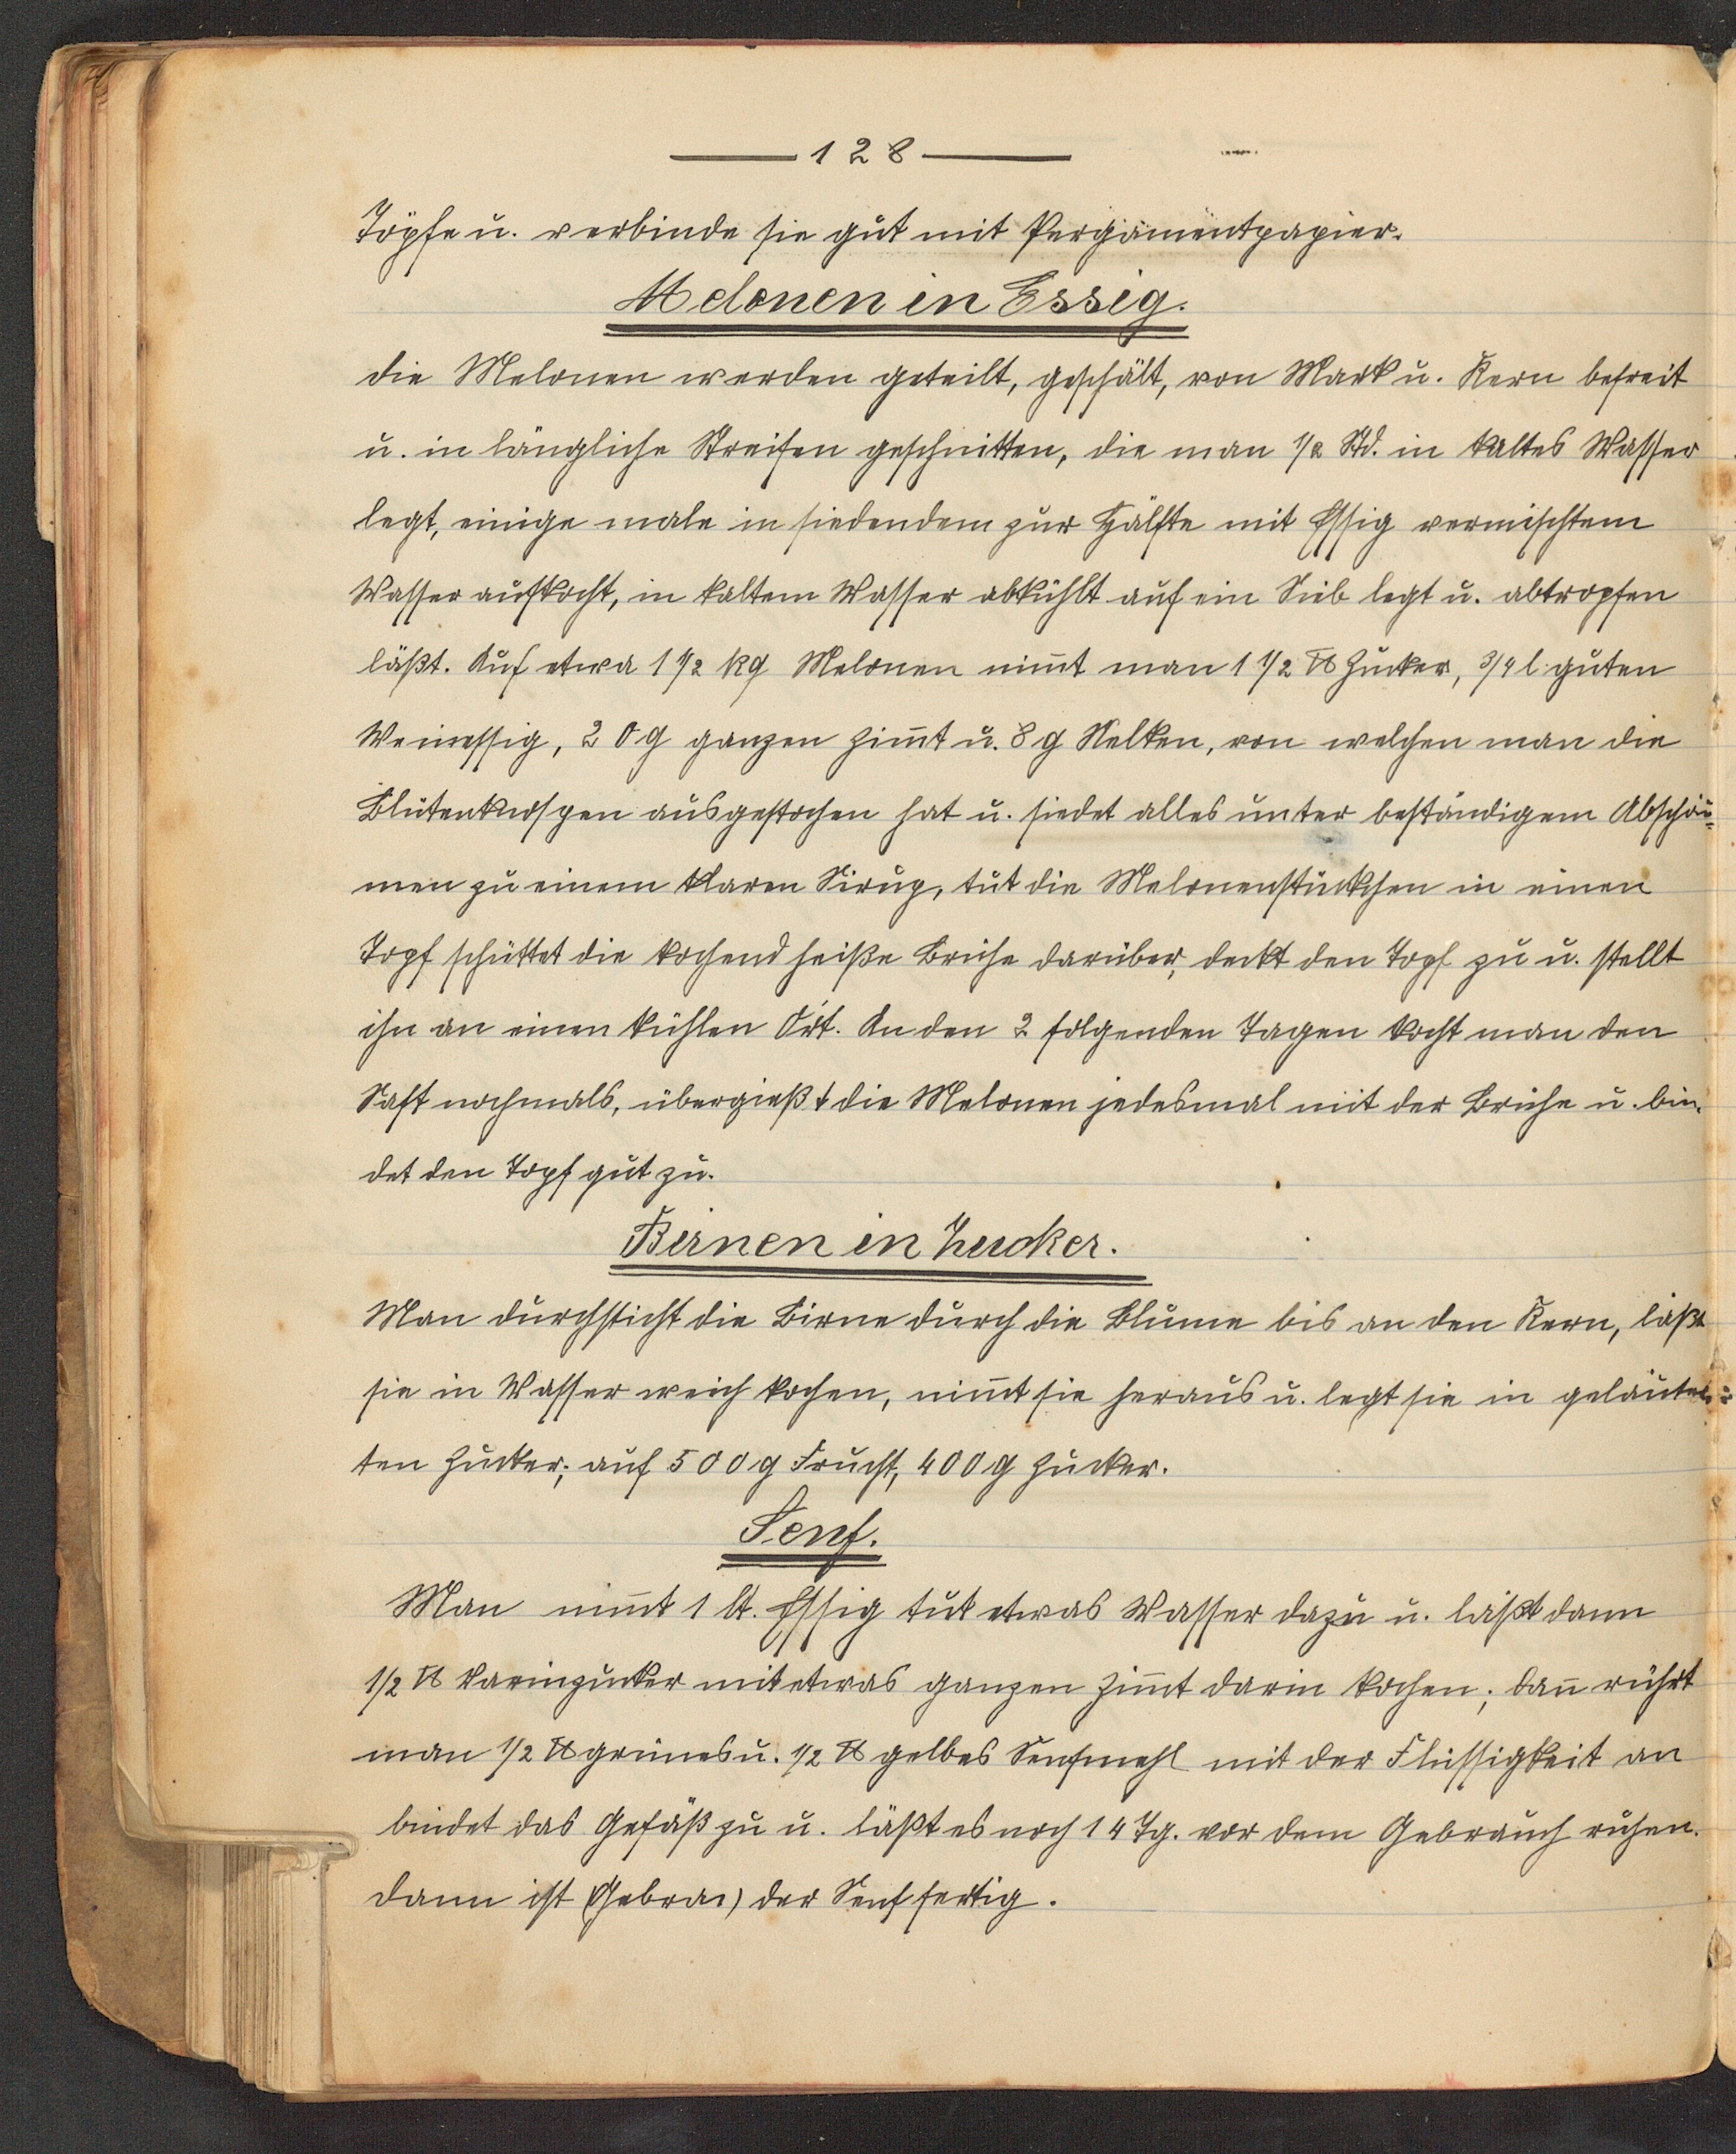 128
Töpfe u. verbinde sie gut mit Pergamentpapier.
Melonen in Essig.
die Melonen werden geteilt, geschält, von Mark u. Kern befreit
u. in längliche Streifen geschnitten, die man 1/2 Std. in kaltes Wasser
legt, einige male in siedendem zur Hälfte mit Essig vermischtem
Wasser aufkocht, in kaltem Wasser abkühlt auf ein Sieb legt u. abtropfen
läßt. Auf etwa 1 1/2 kg Melonen nim̅t man 1 1/2 ℔ Zucker, 3/4 l guten
Weinessig, 20 g ganzen Zim̅t u. 8 g Nelken, von welchen man die
Blütenknospen ausgestochen hat u. siedet alles unter beständigem Abschäu=
men zu einem klaren Sirup, tut die Melonenstückchen in einen
Topf schüttet die kochend heiße Brühe darüber, deckt den Topf zu u. stellt
ihn an einen kühlen Ort. An den 2 folgenden Tagen kocht man den
Saft nochmals, übergießt die Melonen jedesmal mit der Brühe u. bin-
det den Topf gut zu.
Birnen in Zucker.
Man durchsticht die Birne durch die Blume bis an den Kern, läßt
sie in Wasser weich kochen, nim̅t sie heraus u. legt sie in geläuter=
ten Zucker; auf 500 g Frucht, 400 g Zucker.
Senf.
Man nim̅t 1 lt. Essig tut etwas Wasser dazu u. läßt dann
1/2 ℔ Farinzucker mit etwas ganzen Zim̅t darin kochen; dan̅ rührt
man 1/2 ℔ grünes u. 1/2 ℔ gelbes Senfmehl mit der Flüssigkeit an
bindet das Gefäß zu u. läßt es noch 14 Tg. vor dem Gebrauch ruhen.
dann ist (Gebrau) der Senf fertig.